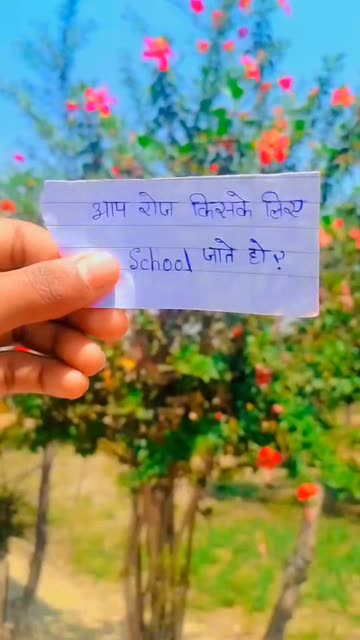 आप रोज किसके लिए
School जाते हो?